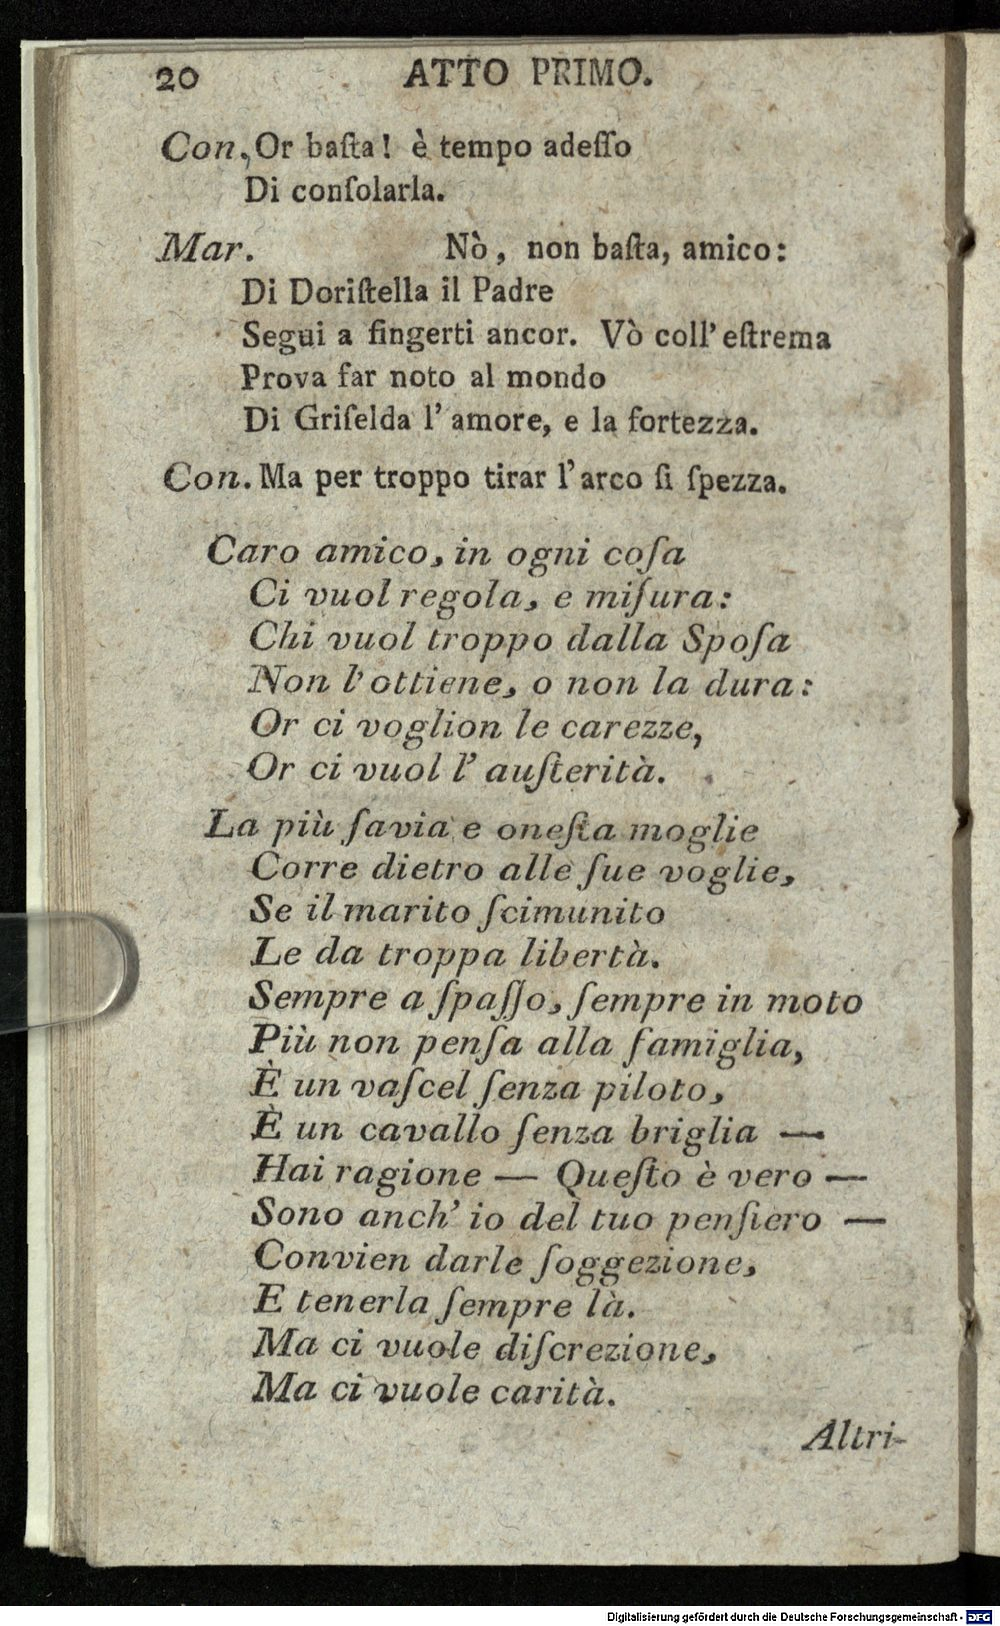 20 ATTO PRIMO.
Con. Or baſta! è tempo adeſſo
Di conſolarla.
Mar. Nò, non baſta, amico:
Di Doriſtella il Padre
Segui a fingerti ancor. Vò coll' eſtrema
Prova far noto al mondo
Di Griſelda l' amore, e la fortezza.
Con. Ma per troppo tirar l' arco ſi ſpezza.
Caro amico, in ogni coſa
Ci vuol regola, e miſura:
Chi vuol troppo dalla Spoſa
Non l' ottiene, o non la dura:
Or ci voglion le carezze,
Or ci vuol l' auſterità.
La più ſavia e oneſta moglie
Corre dietro alle ſue voglie,
Se il marito ſcimunito
Le da troppa libertà.
Sempre a ſpaſſo, ſempre in moto
Più non penſa alla famiglia,
È un vaſcel ſenza piloto,
È un cavallo ſenza briglia —
Hai ragione — Queſto è vero —
Sono anch' io del tuo penſiero —
Convien darle ſoggezione,
E tenerla ſempre là.
Ma ci vuole diſcrezione,
Ma ci vuole carità.
Altri-
Digitalisierung gefördert durch die Deutsche Forschungsgemeinschaft - DFG